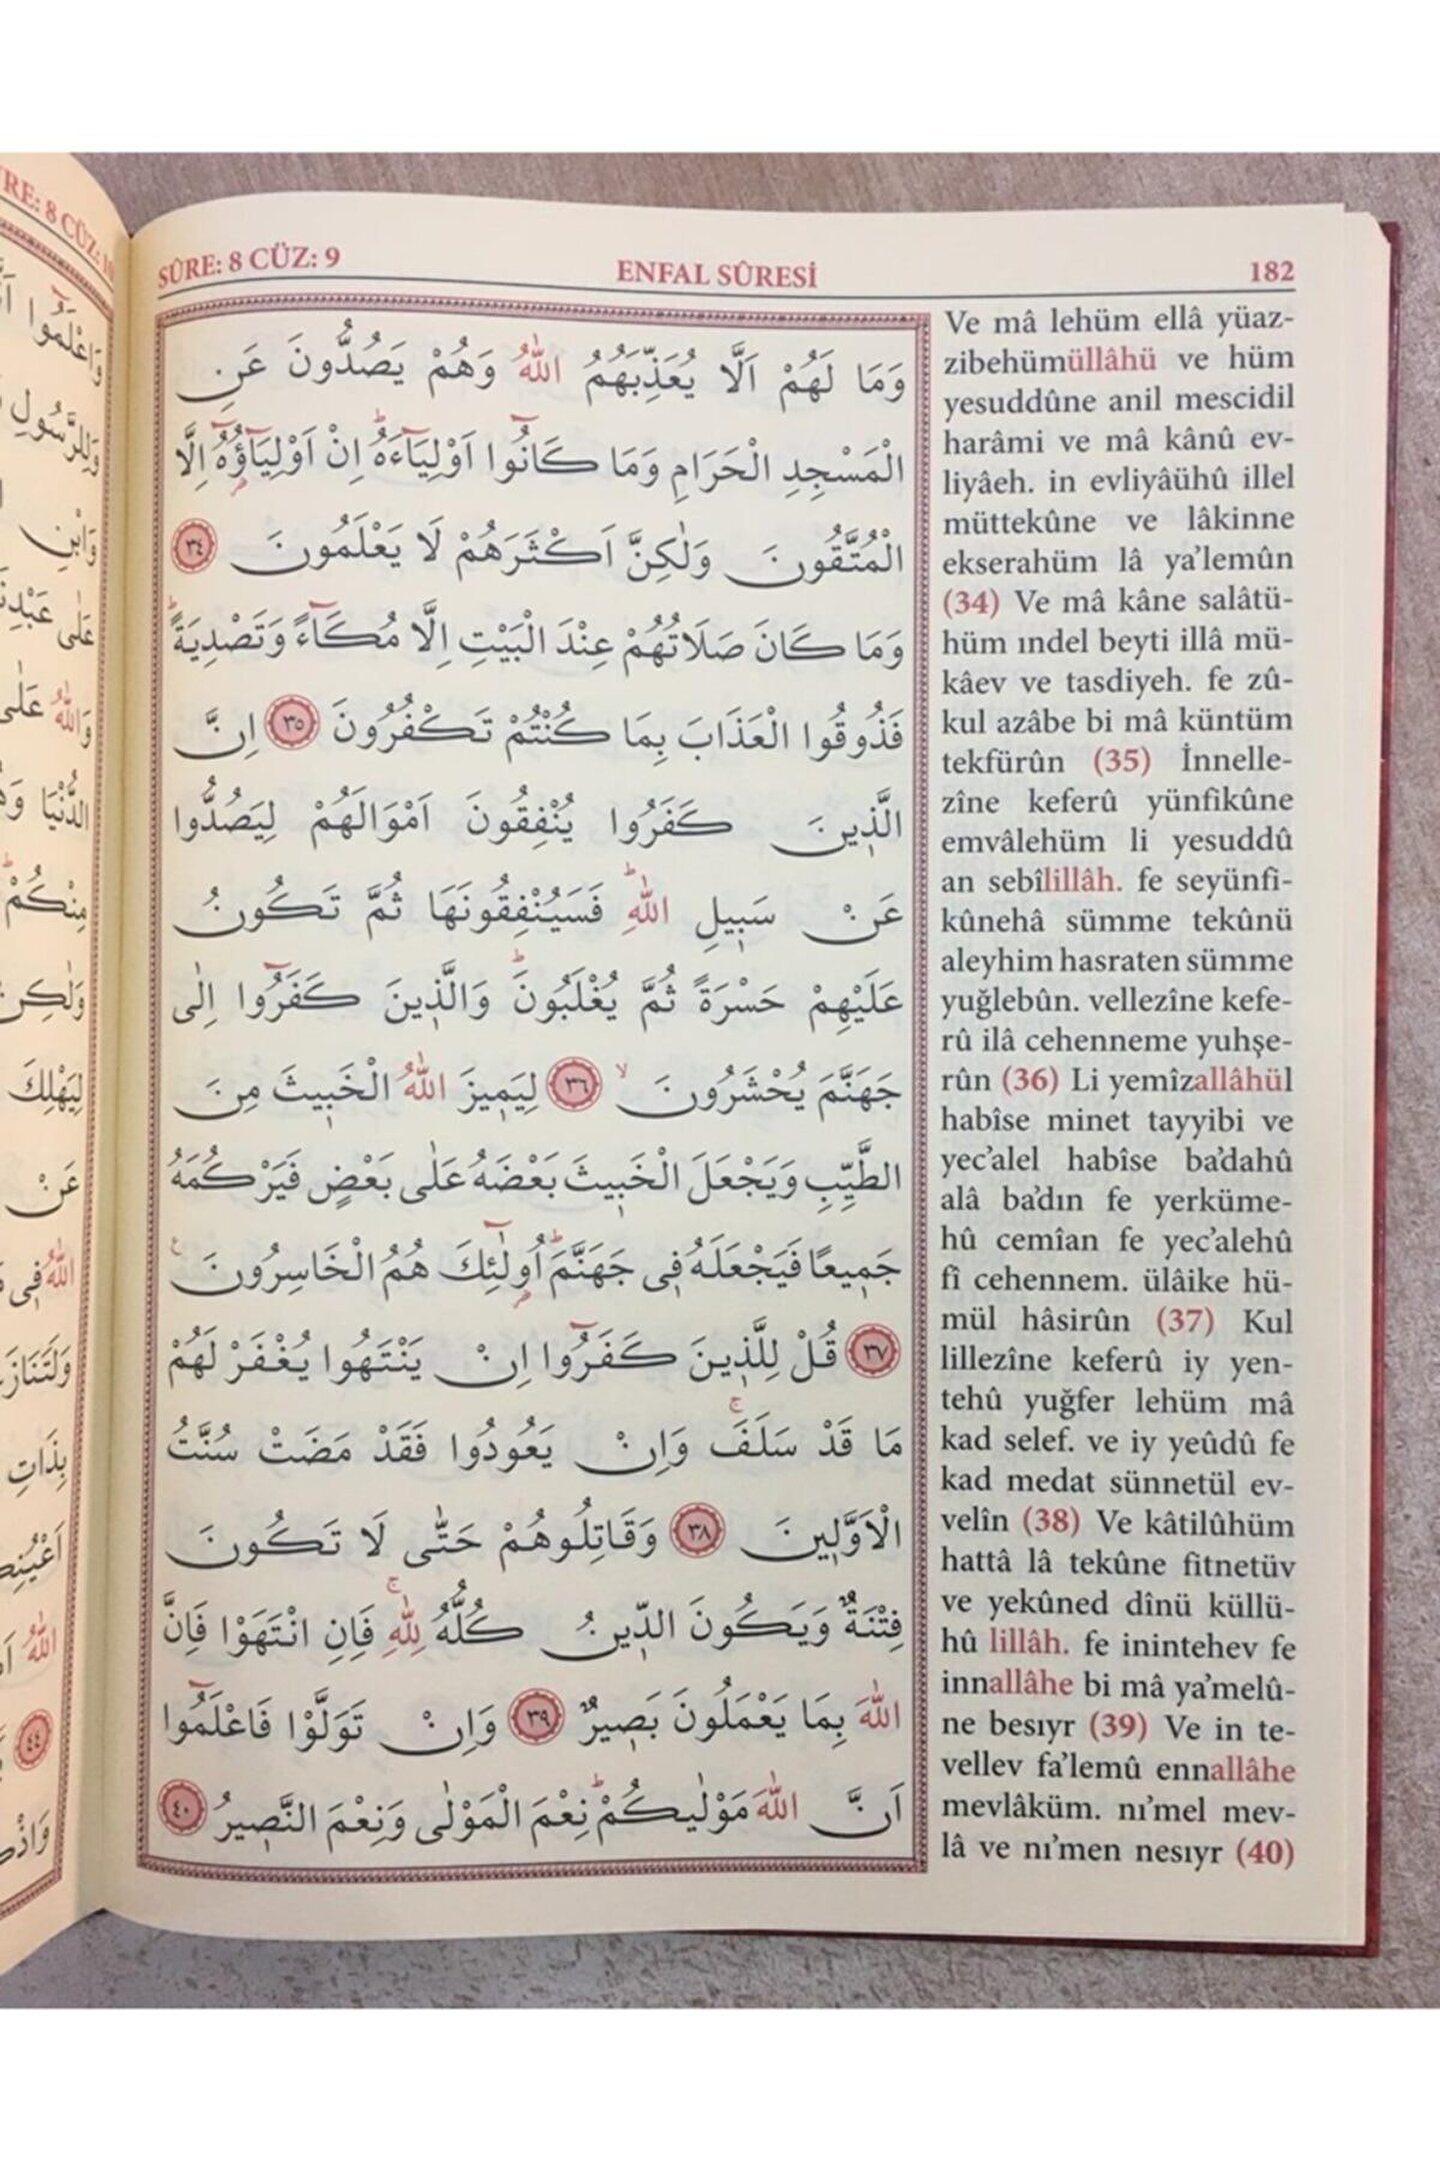 SÛRE: 8 CÜZ: 9
ENFAL SÛRESİ
182
وَمَا لَهُمْ اَلَّا يُعَذِّبَهُمُ اللّٰهُ وَهُمْ يَصُدُّونَ عَنِ
الْمَسْجِدِ الْحَرَامِ وَمَا كَانُٓوا اَوْلِيَٓاءَهُۜ اِنْ اَوْلِيَٓاؤُ۬هُٓ اِلَّا
الْمُتَّقُونَ وَلٰكِنَّ اَكْثَرَهُمْ لَا يَعْلَمُونَ ﴿٣٤﴾
وَمَا كَانَ صَلَاتُهُمْ عِنْدَ الْبَيْتِ اِلَّا مُكَٓاءً وَتَصْدِيَةًۜ
فَذُوقُوا الْعَذَابَ بِمَا كُنْتُمْ تَكْفُرُونَ ﴿٣٥﴾ اِنَّ
الَّذ۪ينَ كَفَرُوا يُنْفِقُونَ اَمْوَالَهُمْ لِيَصُدُّوا
عَنْ سَب۪يلِ اللّٰهِۜ فَسَيُنْفِقُونَهَا ثُمَّ تَكُونُ
عَلَيْهِمْ حَسْرَةً ثُمَّ يُغْلَبُونَۜ وَالَّذ۪ينَ كَفَرُٓوا اِلٰى
جَهَنَّمَ يُحْشَرُونَۙ ﴿٣٦﴾ لِيَم۪يزَ اللّٰهُ الْخَب۪يثَ مِنَ
الطَّيِّبِ وَيَجْعَلَ الْخَب۪يثَ بَعْضَهُ عَلٰى بَعْضٍ فَيَرْكُمَهُ
جَم۪يعًا فَيَجْعَلَهُ ف۪ي جَهَنَّمَۜ اُو۬لٰٓئِكَ هُمُ الْخَاسِرُونَ۟
﴿٣٧﴾ قُلْ لِلَّذ۪ينَ كَفَرُٓوا اِنْ يَنْتَهُوا يُغْفَرْ لَهُمْ
مَا قَدْ سَلَفَۚ وَاِنْ يَعُودُوا فَقَدْ مَضَتْ سُنَّتُ
الْاَوَّل۪ينَ ﴿٣٨﴾ وَقَاتِلُوهُمْ حَتّٰى لَا تَكُونَ
فِتْنَةٌ وَيَكُونَ الدّ۪ينُ كُلُّهُ لِلّٰهِۚ فَاِنِ انْتَهَوْا فَاِنَّ
اللّٰهَ بِمَا يَعْمَلُونَ بَص۪يرٌ ﴿٣٩﴾ وَاِنْ تَوَلَّوْا فَاعْلَمُٓوا
اَنَّ اللّٰهَ مَوْلٰيكُمْۜ نِعْمَ الْمَوْلٰى وَنِعْمَ النَّص۪يرُ ﴿٤٠﴾
Ve mâ lehüm ellâ yüaz-
zibehümüllâhü ve hüm
yesuddûne anil mescidil
harâmi ve mâ kânû ev-
liyâeh. in evliyâühû illel
müttekûne ve lâkinne
ekserahüm lâ ya’lemûn
(34) Ve mâ kâne salâtü-
hüm ındel beyti illâ mü-
kâev ve tasdiyeh. fe zû-
kul azâbe bi mâ küntüm
tekfürûn (35) İnnelle-
zîne keferû yünfikûne
emvâlehüm li yesuddû
an sebîlillâh. fe seyünfi-
kûnehâ sümme tekûnü
aleyhim hasraten sümme
yuğlebûn. vellezîne kefe-
rû ilâ cehenneme yuhşe-
rûn (36) Li yemîzallâhül
habîse minet tayyibi ve
yec’alel habîse ba’dahû
alâ ba’dın fe yerküme-
hû cemîan fe yec’alehû
fî cehennem. ülâike hü-
mül hâsirûn (37) Kul
lillezîne keferû iy yen-
tehû yuğfer lehüm mâ
kad selef. ve iy yeûdû fe
kad medat sünnetül ev-
velîn (38) Ve kâtilûhüm
hattâ lâ tekûne fitnetüv
ve yekûned dînü küllü-
hû lillâh. fe inintehev fe
innallâhe bi mâ ya’melû-
ne besıyr (39) Ve in te-
vellev fa’lemû ennallâhe
mevlâküm. nı’mel mev-
lâ ve nı’men nesıyr (40)